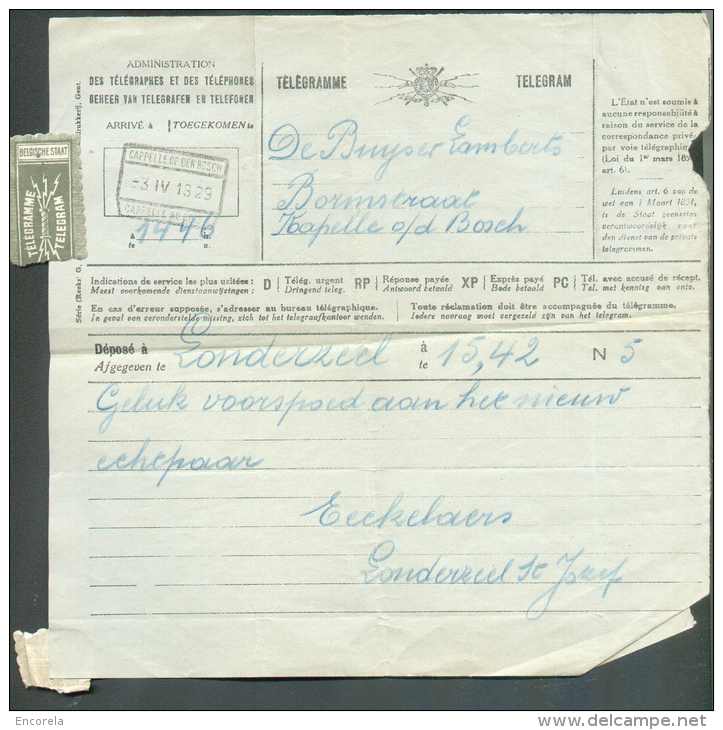 ADMINISTRATION
DES TÉLÉGRAPHES ET DES TÉLÉPHONES
BEHEER VAN TELEGRAFEN EN TELEFONEN
ARRIVÉ à TOEGEKOMEN te
CAPPELLE OP DEN BOSCH
-3 IV 1929
CAPPELLE AU
à
te
u.
TÉLÉGRAMME
TELEGRAM
De Buyser Lamberts
Bormstraat
Kapelle o/d Bosch
L'État n'est soumis à
aucune responsabilité à
raison du service de la
correspondance privée
par voie télégraphique
(Loi du 1er mars 185
art. 6).
Luidens art. 6 van de
wet van 1 Maart 1851,
is de Staat geenszins
verantwoordelijk voor
den dienst van de private
telegrammen.
BELGISCHE STAAT
TÉLÉGRAMME
TELEGRAM
drukkerij, Gent.
Série (Reeks) G.
Indications de service les plus usitées :
Meest voorkomende dienstaanwijzingen :
D Télég. urgent
Dringend teleg.
RP Réponse payée
Antwoord betaald
XP Exprès payé
Bode betaald
PC Tél. avec accusé de récept.
Tel. met kenning van ontv.
En cas d'erreur supposée, s'adresser au bureau télégraphique.
In geval van veronderstelde missing, zich tot het telegraafkantoor wenden.
Toute réclamation doit être accompagnée du télégramme.
Ieders navraag moet vergezeld zijn van het telegram.
Déposé à
Afgegeven te
Londerzeel
à
te
15,42 N 5
Geluk voorspoed aan het nieuw
echtpaar
Eeckelaers
Londerzeel St Jozef
Encorela
www.delcampe.net